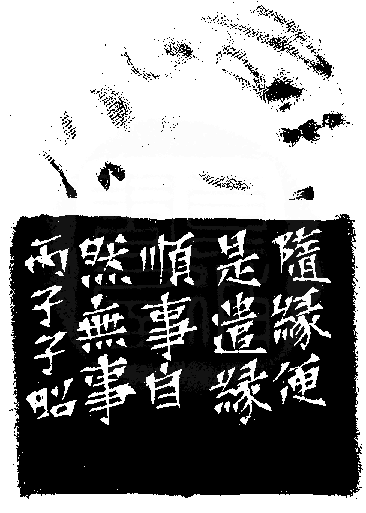 隨緣便
是遣緣
順事自
然無事
丙子子昭